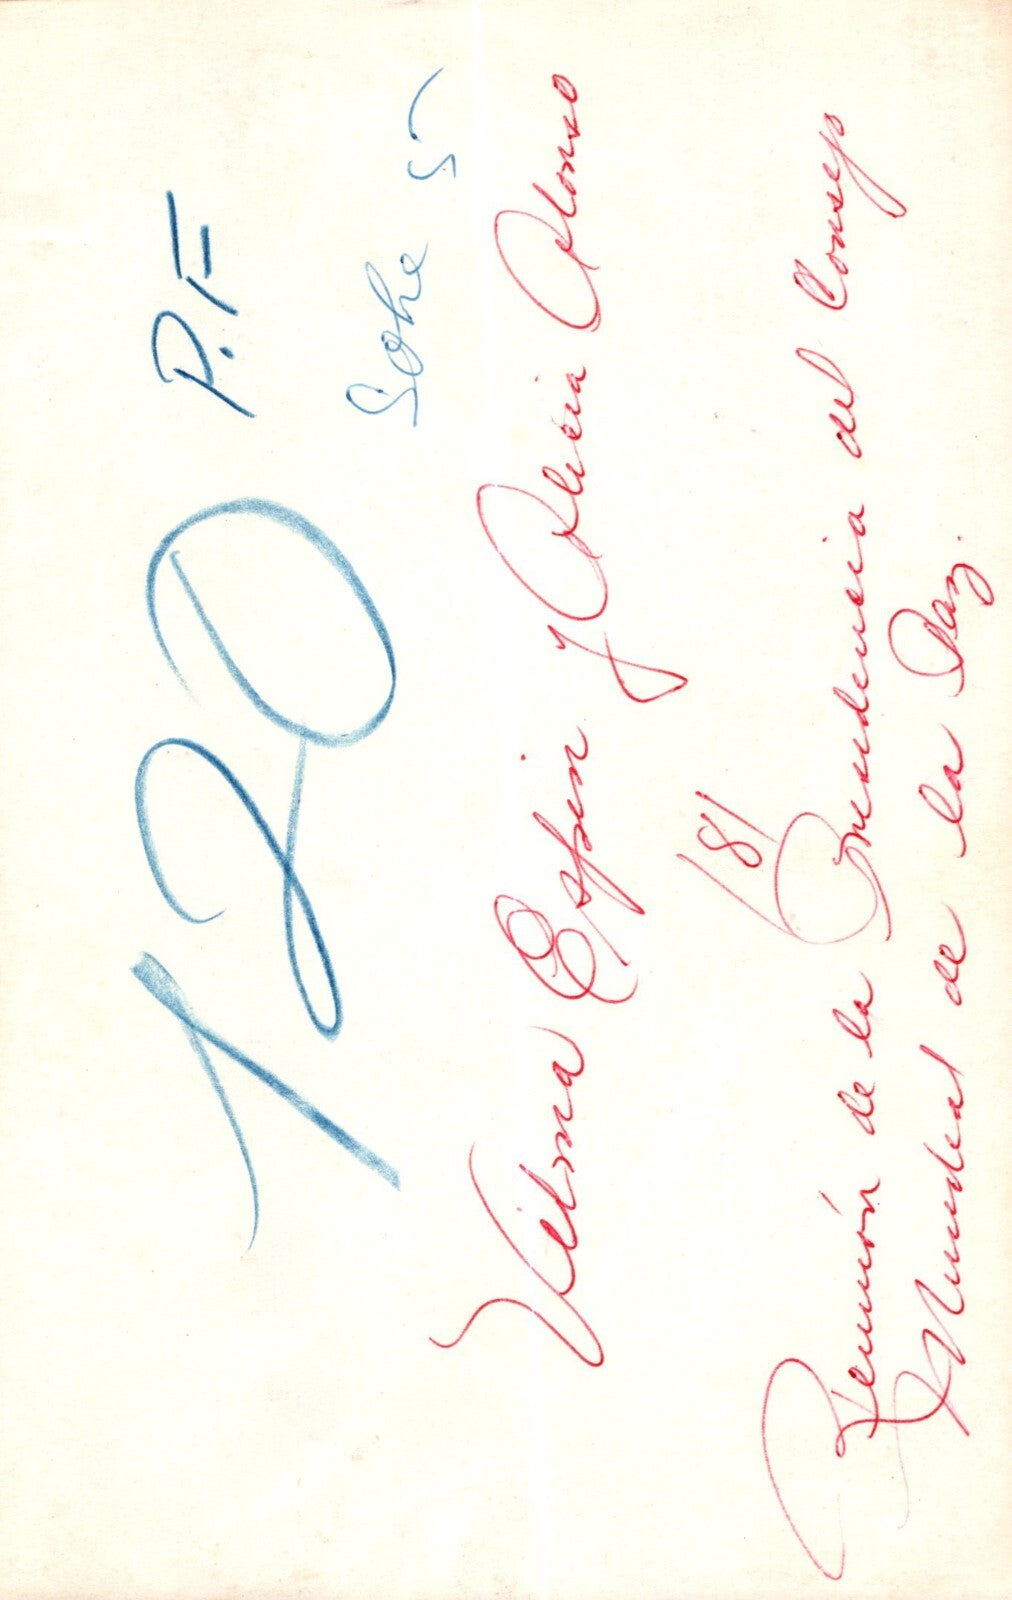 120 P.F
Sobre 55
Vilma Espin y Alicia Alonso
/81/
Reunión de la Presidencia del Consejo
Mundial de la Paz.